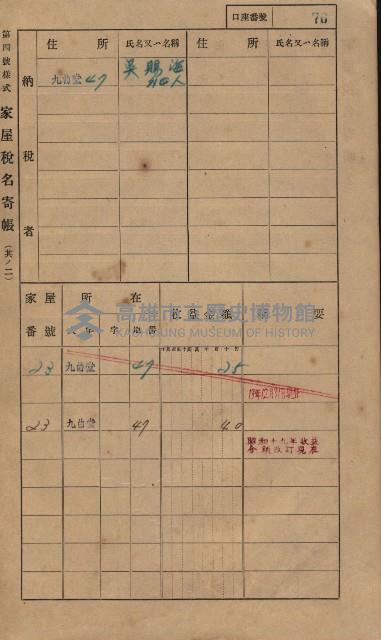 口座番號 76
第四號樣式 家屋稅名寄帳（其ノ二）
納稅者
住所 氏名又ハ名稱 住所 氏名又ハ名稱
九曲堂 47 吳賜海
外四人
家屋番號 所在 收益金額 摘要
高雄市立歷史博物館
KAOHSIUNG MUSEUM OF HISTORY
23 九曲堂 47 25
23 九曲堂 47 40
昭和十九年收益
金額改訂現在